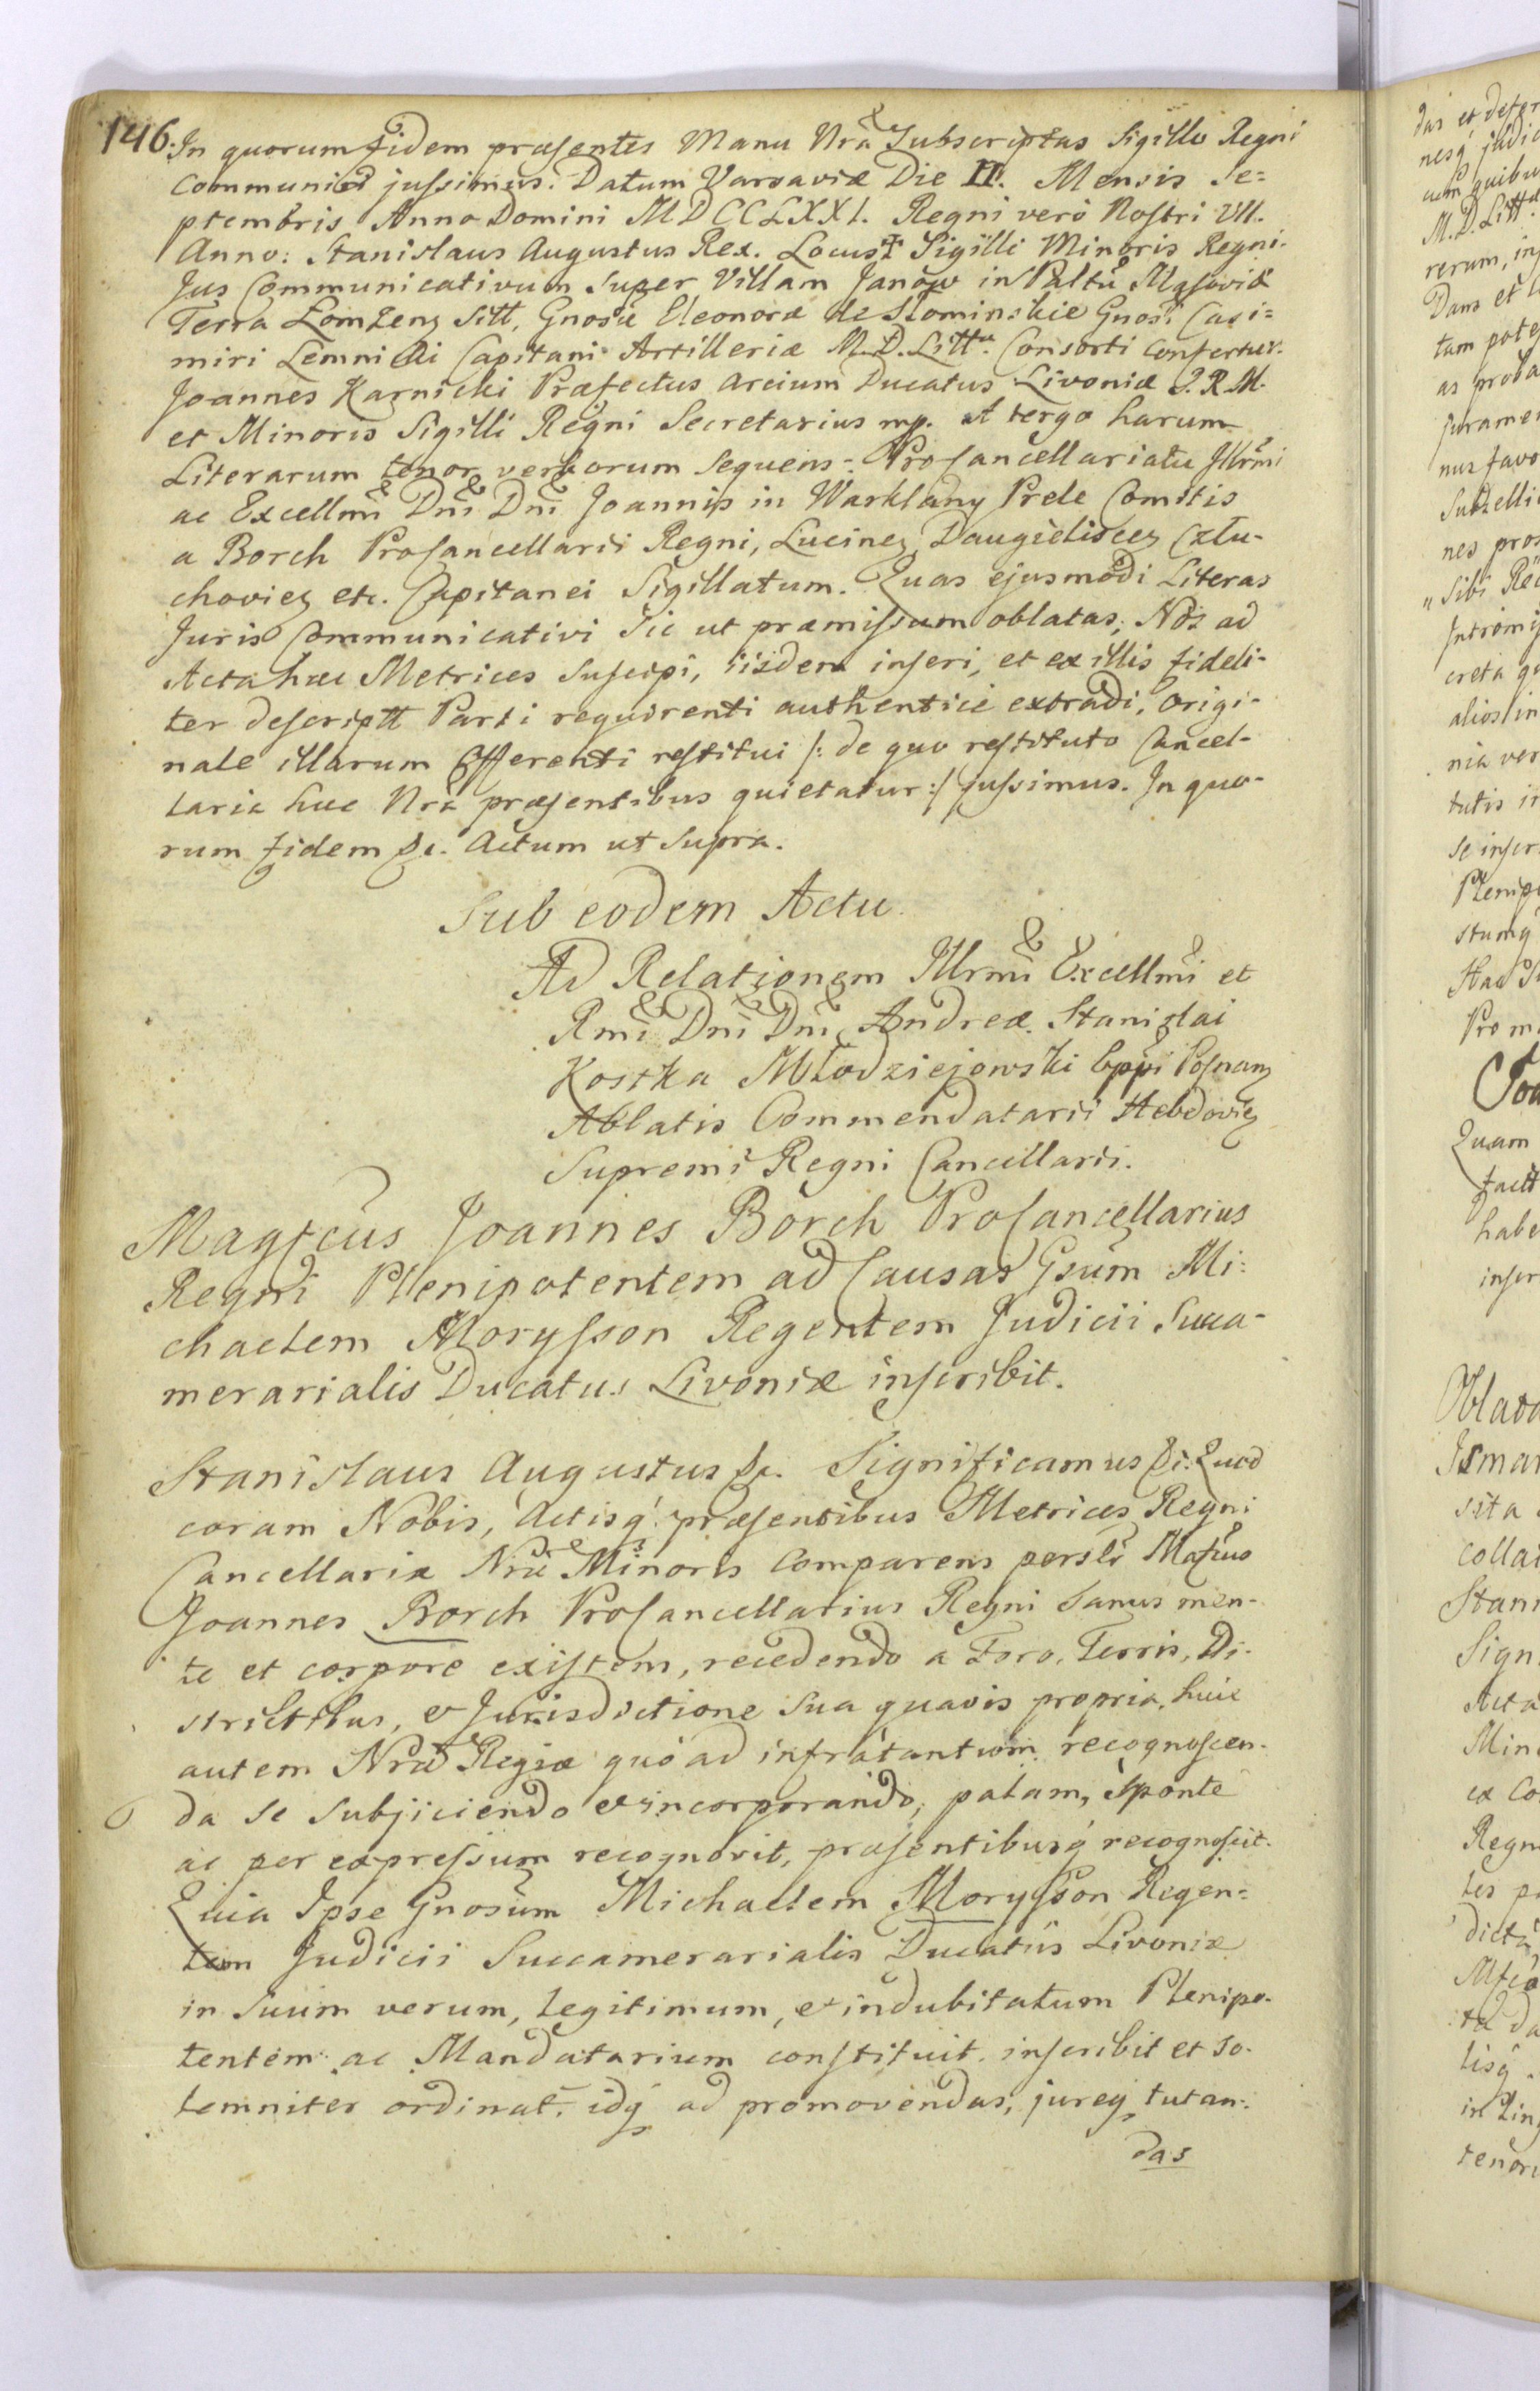 146. In quorum fidem præsentes Manu Nrã Subscriptas Sigillo Regni
communiri jussimus. Datum Varsaviæ Die II. Mensis Se=
ptembris Anno Domini MDCCLXXI. Regni verò Nostri VII.
Anno: Stanislaus Augustus Rex. Locus Sigilli Minoris Regni.
Jus Communicativum Super Villam Janów in Paltũ Masoviæ
Terra Łomżens Sitt, Gnosæ Eleonoræ de Słominskie Gnosi Casi=
miri Lemnicki Capitani Artilleriæ M.D.Litt. Consorti confertur.
Joannes Karnicki Præfectus Arcium Ducatus Livoniæ S.R.M.
et Minoris Sigilli Regni Secretarius mp. A tergo harum
Literarum tenor verborum Sequens: ProCancellariatu Illrmi
ac Excellmi Dni Dni Joannis in Warklany Prele Comitis
a Borch ProCancellarii Regni, Lucinen, Daugielisceń Człu-
chovień etc. Capitanei Sigillatum. Quas ejusmodi Literas
Juris Communicativi Sic ut præmissum oblatas, Nos ad
Acta hæc Metrices Suscipi, iisdem inseri, et ex illis fideli-
ter descriptt Parti requirenti authenticè extradi, Origi-
nale illarum Offerenti restitui /: de quo restituto Cancel-
laria hæc Nrã præsentibus quietatur :/ jussimus. In quo-
rum fidem &c. Actum ut Supra.
Sub eodem Actu.
Ad Relationem Illrmi Excellmi et
Rmi Dni Dni Andreæ Stanislai
Kostka Młodziejowski Eppi Posnań
Abbatis Commendatarii Hebdovień
Supremi Regni Cancellarii.
Magfcus Joannes Borch ProCancellarius
Regni Plenipotentem ad Causas Gsum Mi-
chaelem Morysson Regentem Judicii Succa-
merarialis Ducatus Livoniæ inscribit.
Stanislaus Augustus &c. Significamus &c. Quod
coram Nobis, Actisq́ præsentibus Metrices Regni
Cancellariæ Nræ Minoris Comparens persłr Mafcus
Joannes Borch ProCancellarius Regni Sanus men-
te et corpore existens, recedendo a Foro, Terris, Di-
strictibus, et Jurisdictione Sua quavis propria, huic
autem Nræ Regiæ quò ad infrátantum recognoscen-
da se subjiciendo et incorporando, palam, sponte
ac per expressum recognovit, præsentibusq́ recognoscit.
Quia Ipse Gnosum Michaelem Morysson Regen-
tem Judicii Succamerarialis Ducatûs Livoniæ
in Suum verum, legitimum, et indubitatum Plenipo-
tentem ac Mandatarium constituit, inscribit et so-
lemniter ordinat, idq́ ad promovendas, jureq́ tutan-
das